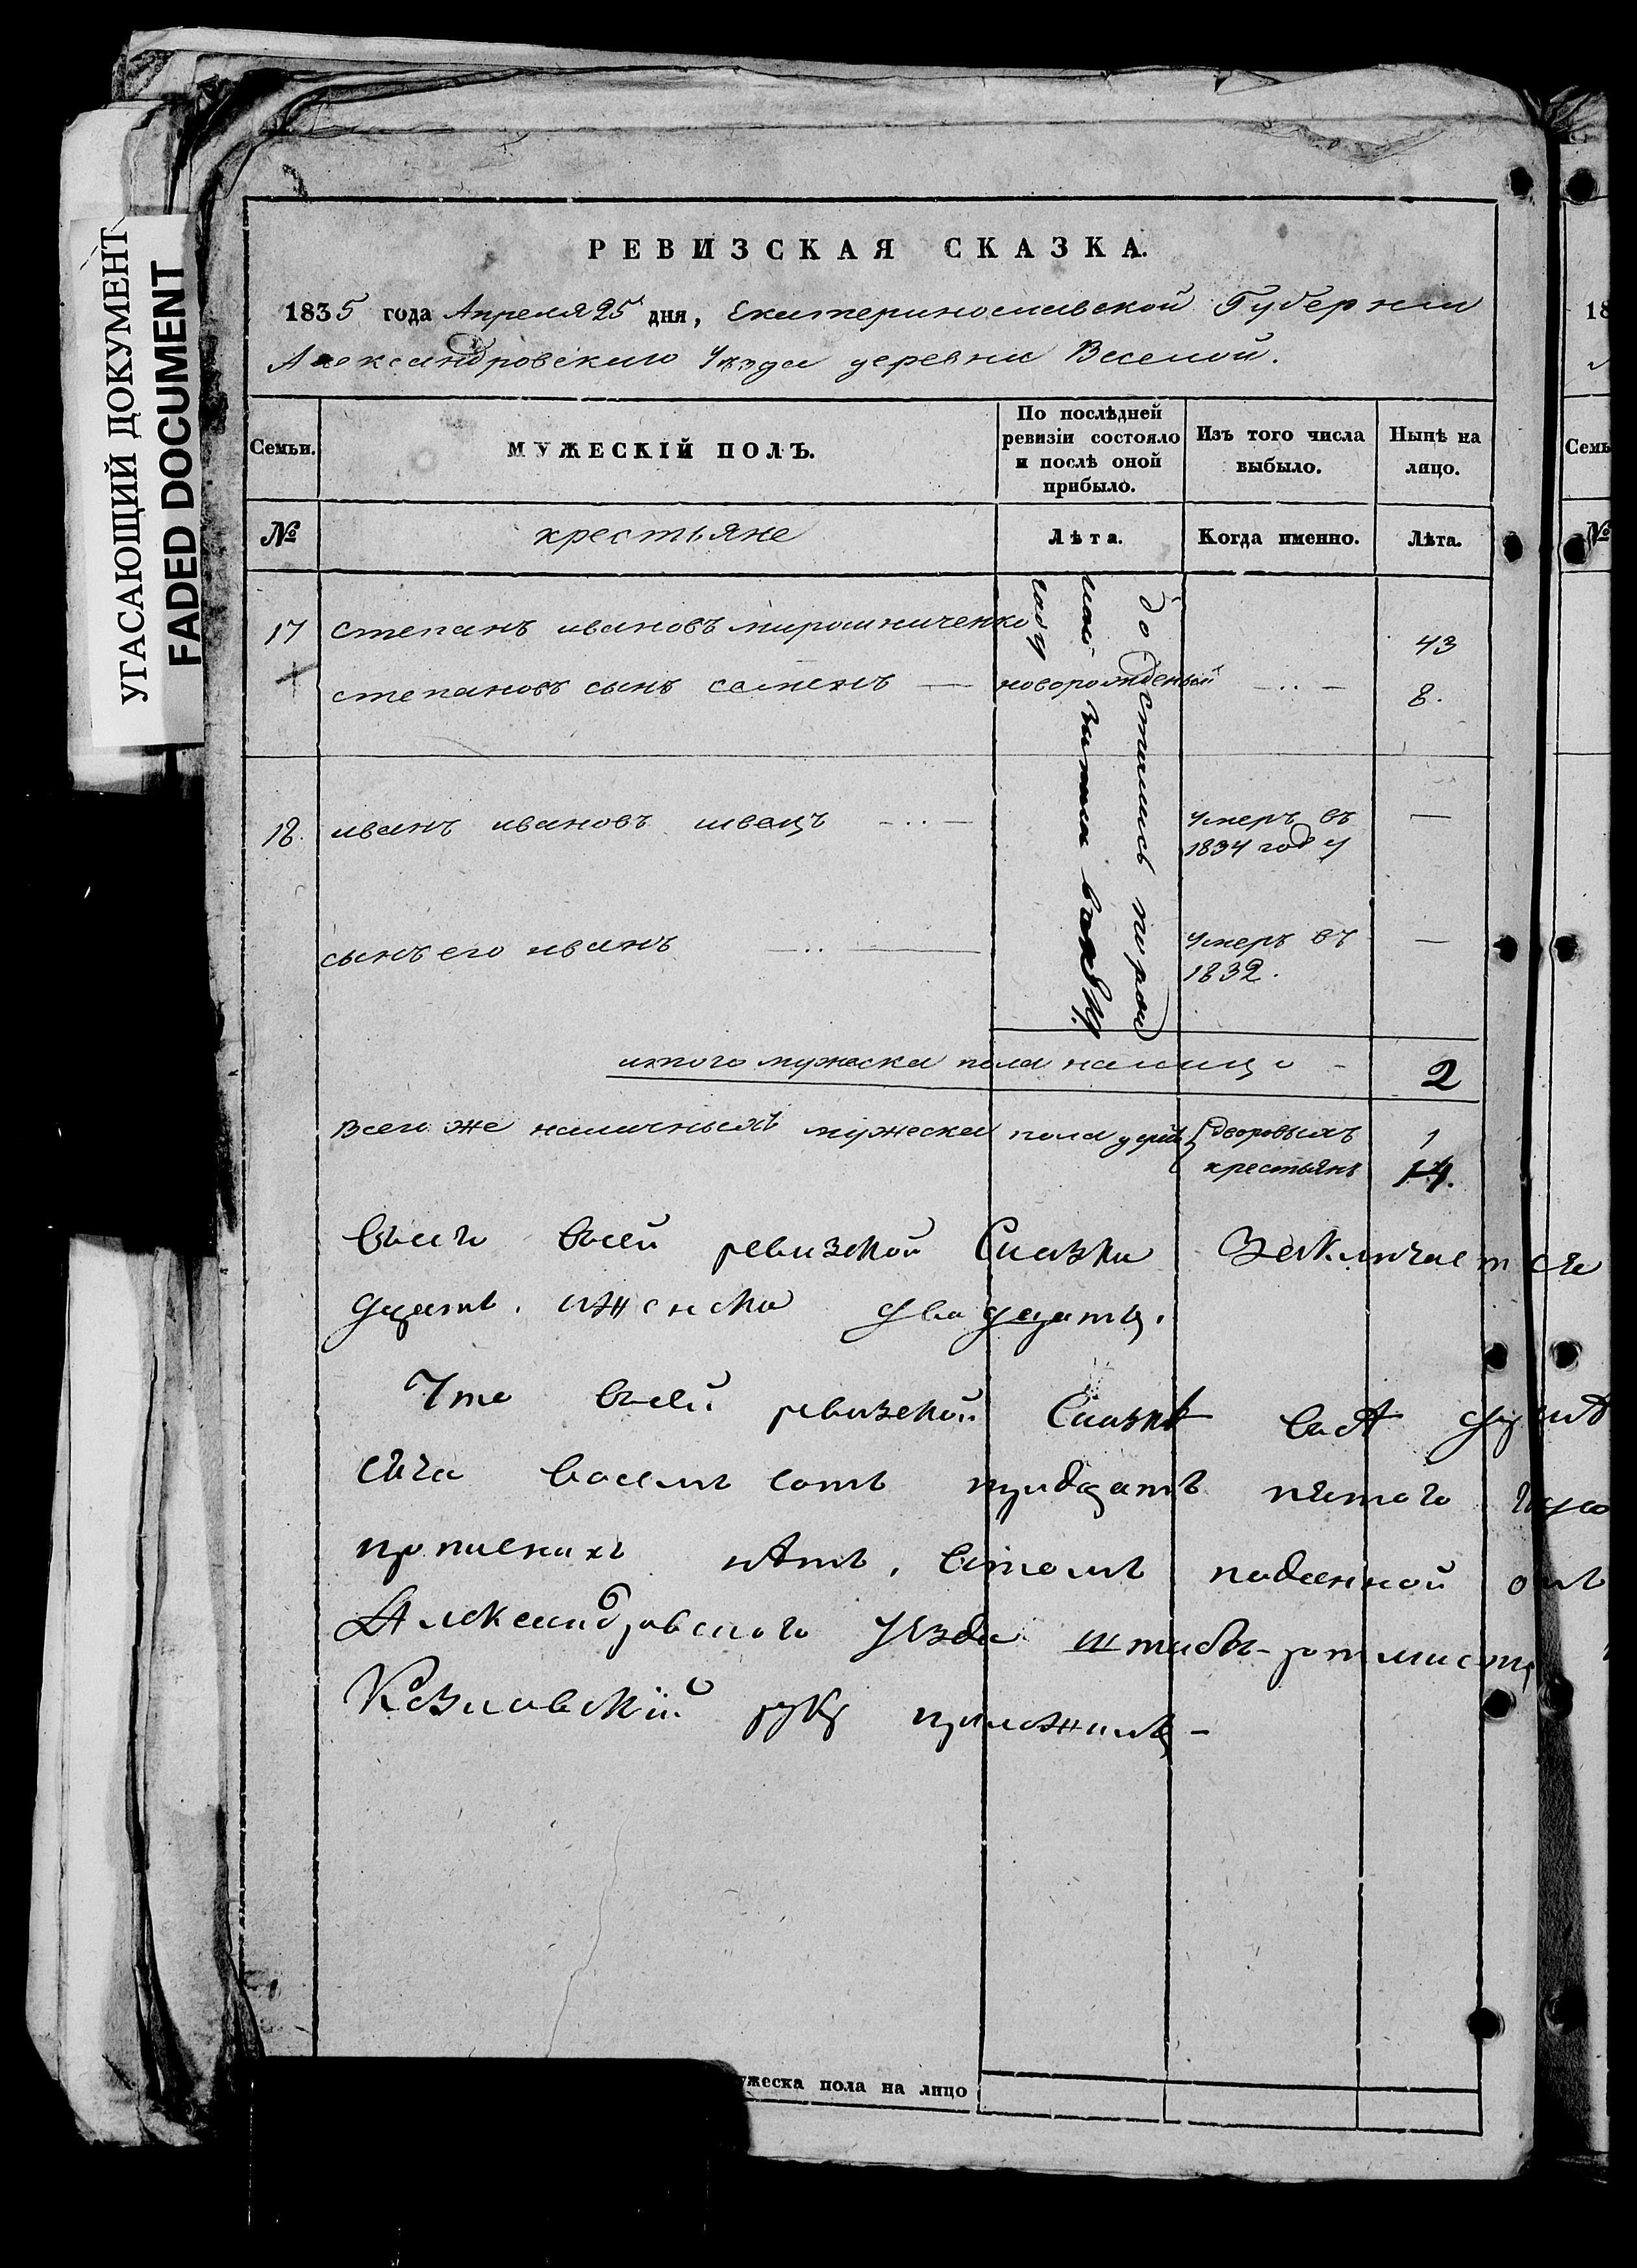 УГАСАЮЩИЙ ДОКУМЕНТ
FADED DOCUMENT
РЕВИЗСКАЯ СКАЗКА.
1835 года Апреля 25 дня, Екатеринославской Губернии
Александровскаго Уезда деревни Веселой.
Семьи.
МУЖЕСКІЙ ПОЛЪ.
По послѣдней
ревизіи состояло
и послѣ оной
прибыло.
Изъ того числа
выбыло.
Нынѣ на
лицо.
№
крестьяне
Лѣта.
Когда именно.
Лѣта.
17 степанъ ивановъ мирошниченко 43
степановъ сынъ семенъ — новорожденый 8.
достались по
году
18. иванъ ивановъ швецъ умеръ въ —
1834 году
сынъ его иванъ умеръ въ —
1832.
итого мужеска пола налицо - 2
Всего же наличныхъ мужеска пола душъ дворовыхъ 1
крестьянъ 14.
Всего всей ревизской Сказки Заключается
дцать. иженска двадцать.
Что всей ревизской Сказкѣ всѣ душѣ
сяча восемь сотъ тридцать пятого
прописныхъ нѣтъ, втомъ поданной
Александровского уезда штабъ-ротмистр
Козловский руку приложилъ -
ужеска пола на лицо
18
Семь
№